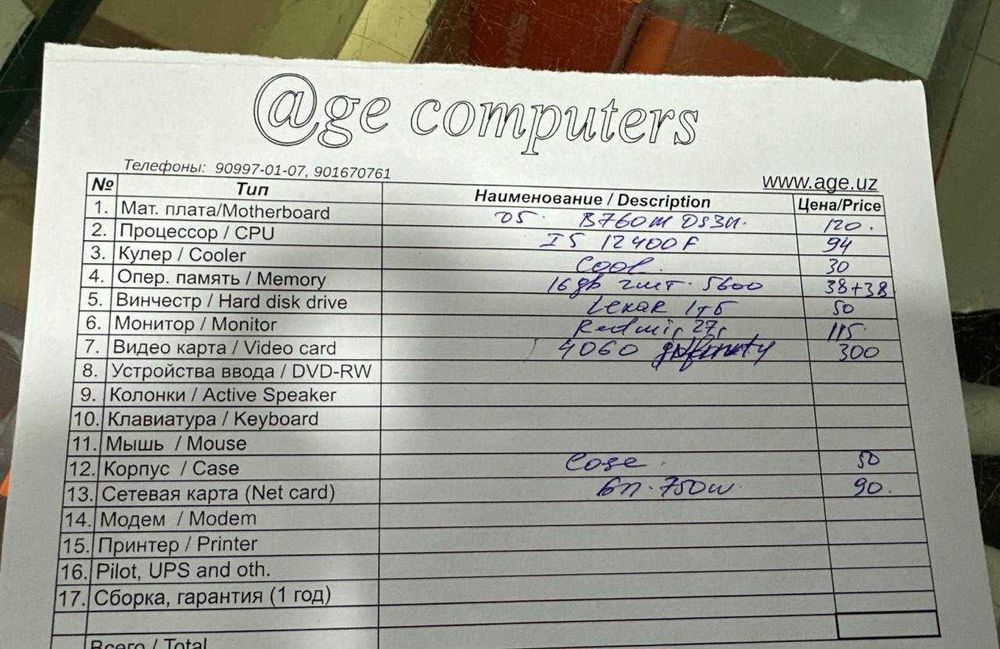 @ge computers
Телефоны: 90997-01-07, 901670761
www.age.uz
№ Тип Наименование / Description Цена/Price
1. Мат. плата/Motherboard D5. B760M DS3H. 120.
2. Процессор / CPU I5 12400F 94
3. Кулер / Cooler Cool. 30
4. Опер. память / Memory 16gb 2шт. 5600 38+38
5. Винчестр / Hard disk drive Lexar 1тб 50
6. Монитор / Monitor Redmi 27 115
7. Видео карта / Video card 4060 300
8. Устройства ввода / DVD-RW
9. Колонки / Active Speaker
10. Клавиатура / Keyboard
11. Мышь / Mouse
12. Корпус / Case Case. 50
13. Сетевая карта (Net card) БП. 750w. 90.
14. Модем / Modem
15. Принтер / Printer
16. Pilot, UPS and oth.
17. Сборка, гарантия (1 год)
Всего / Total